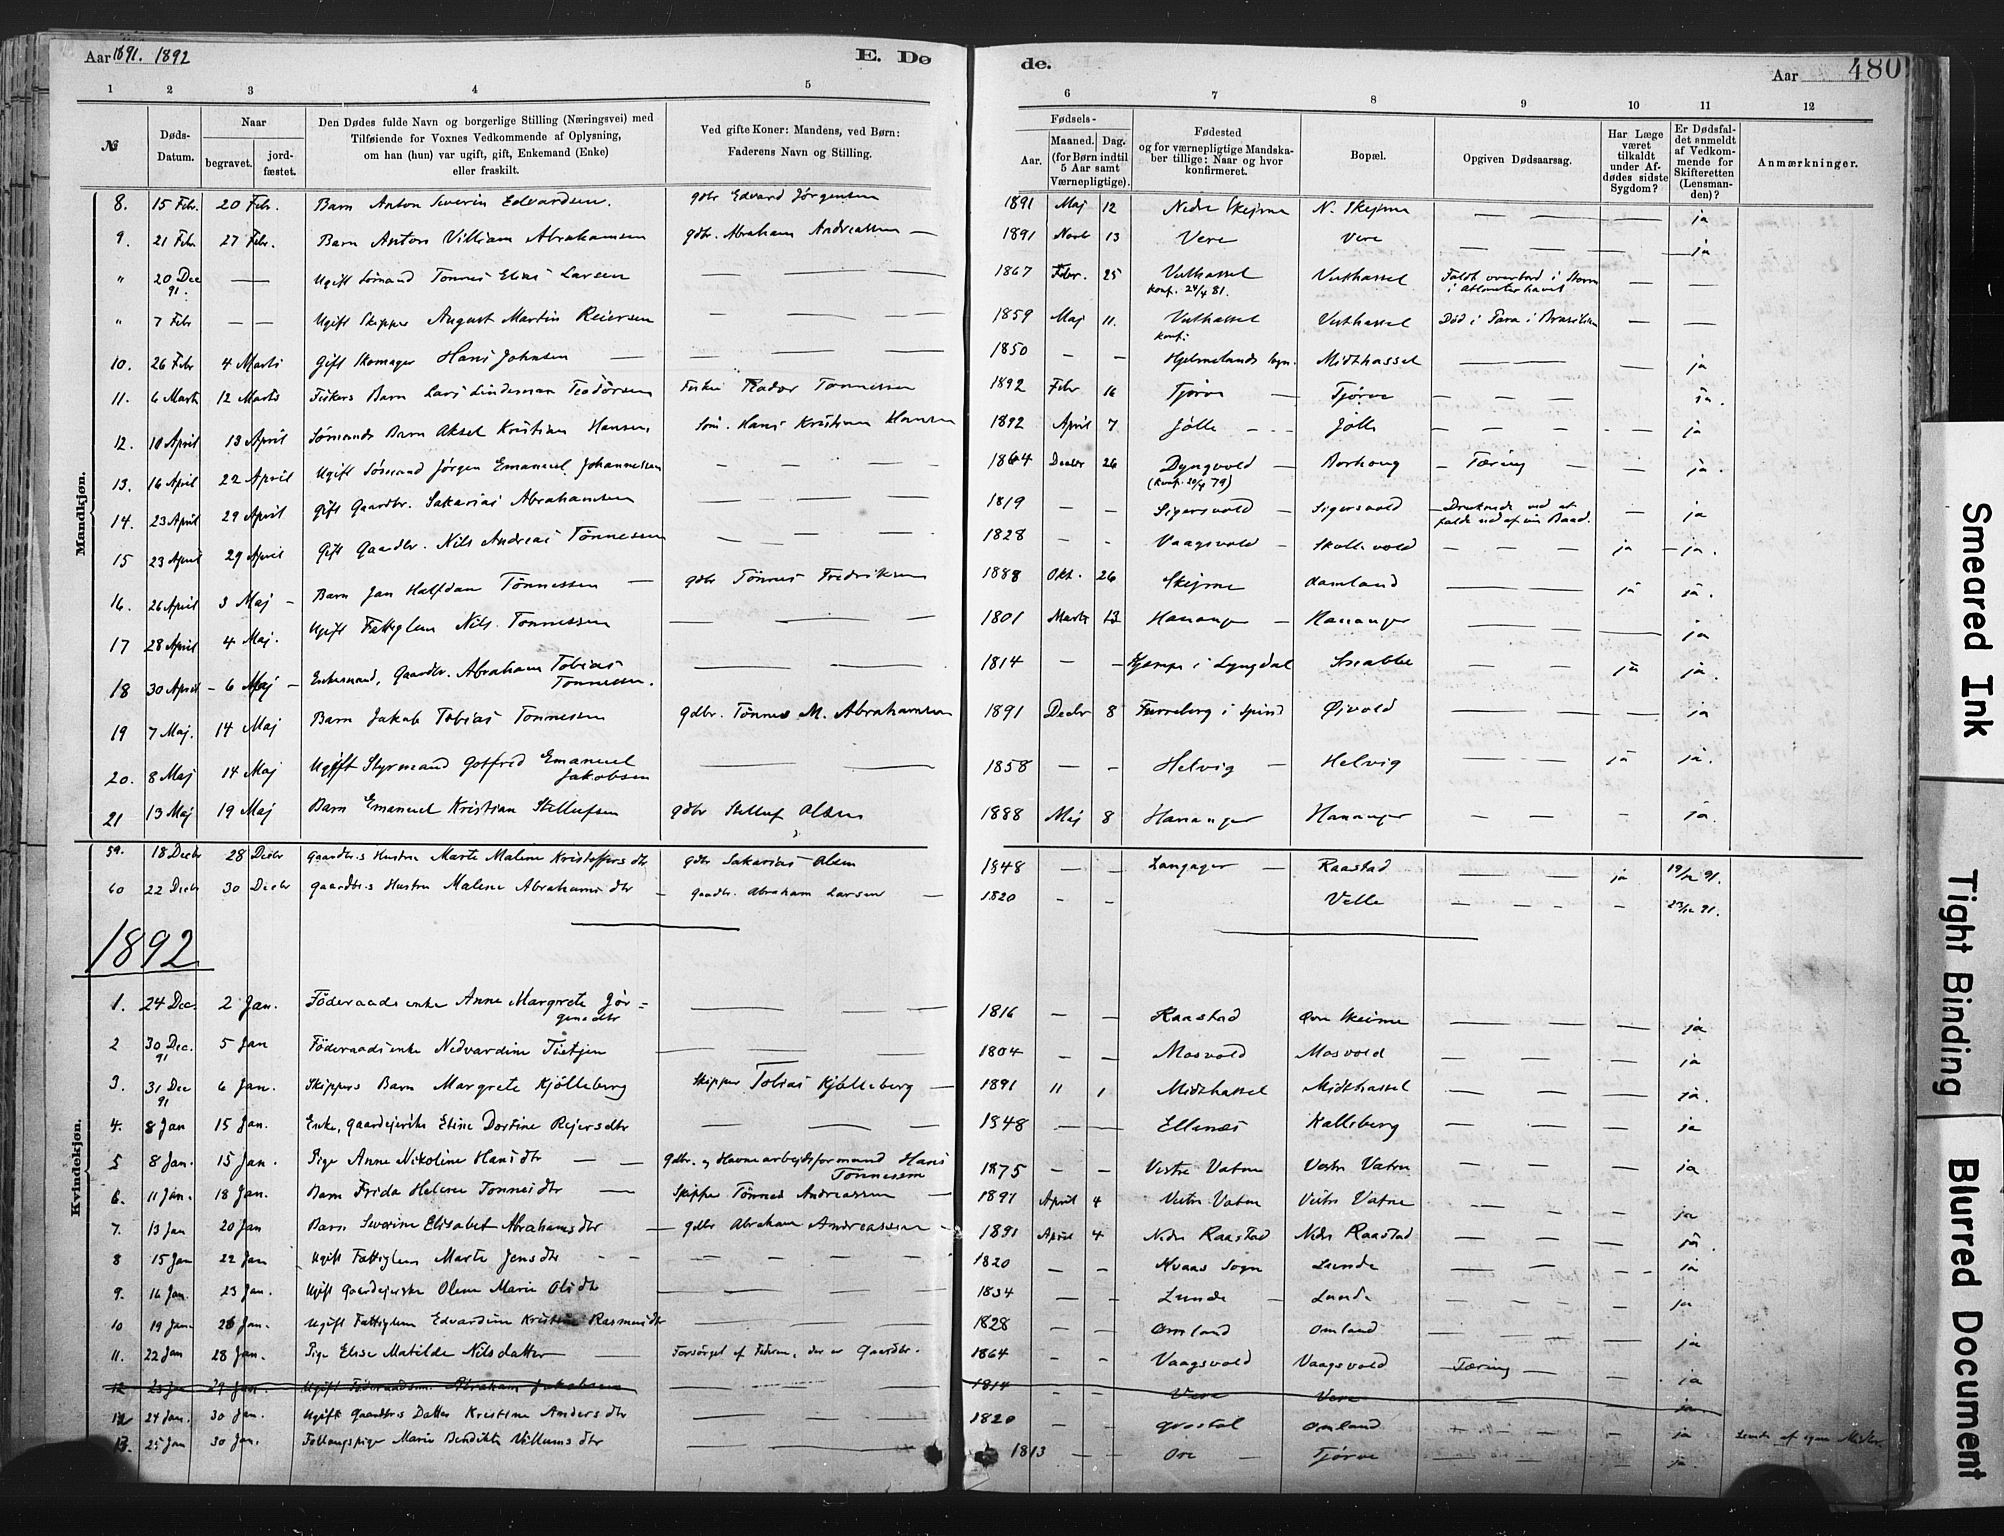 Aar 1891. 1892
E. Dø
de.
Aar
480
1 2 3 4 5 6 7 8 9 10 11 12
№
Døds-Datum.
Naar
begravet.
jordfæstet.
Den Dødes fulde Navn og borgerlige Stilling (Næringsvei) med
Tilføiende for Voxnes Vedkommende af Oplysning,
om han (hun) var ugift, gift, Enkemand (Enke)
eller fraskilt.
Ved gifte Koner: Mandens, ved Børn:
Faderens Navn og Stilling.
Fødsels-
Aar.
Maaned. Dag.
(for Børn indtil
5 Aar samt
Værnepligtige).
Fødested
og for værnepligtige Mandska-
ber tillige: Naar og hvor
konfirmeret.
Bopæl.
Opgiven Dødsaarsag.
Har Læge
været
tilkaldt
under Af-
dødes sidste
Sygdom?
Er Dødsfal-
det anmeldt
af Vedkom-
mende for
Skifteretten
(Lensman-
den)?
Anmærkninger.
Mandkjøn.
8. 15 Febr. 20 Febr. Barn Anton Severin Edvardsen. gdbr Edvard Jørgensen 1891 Maj 12 Nedre Skejme N. Skejme — — — ja
9. 21 Febr 27 Febr. Barn Anton Villiam Abrahamsen gdbr. Abraham Andreassen — 1891 Novb 13 Vere Vere — — — ja
" 20 Dec 91. — Ugift Sømand Tønnes Elias Larsen — — — 1867 Febr. 25 Vesthassel konf. 24/4 81. Vesthassel Faldt overbord i Storm i Atlanterhavet — —
" 7 Febr — — Ugift Skipper August Martin Reiersen — — — 1859 Maj 11. Vesthassel konf: Vesthassel Død i Para i Brasilien — —
10. 26 Febr 4 Marts Gift Skomager Hans Johnsen — — — 1850 — — Hjelmelands sogn. Midthassel — — — ja
11. 6 Marts 12 Marts Fiskers Barn Lars Lindeman Teodorsen Fisker Teodor Tønnessen 1892 Febr 16 Tjørve — Tjørve — — — ja.
12. 10 April 13 April Sømands Barn Aksel Kristian Hansen Søm. Hans Kristian Hansen 1892 April 7 Jølle — Jølle — — — ja
13. 16 April 22 April Ugift Sømand Jørgen Emanuel Johannessen — — — 1864 Decbr 26 Dyngvold (konf. 20/4 79) Borhaug — Tæring — — ja.
14. 23 April 29 April Gift Gaardbr. Sakarias Abrahamsen — — — 1819 — — Sigersvold — Sigersvold — Druknede ved at falde ud af sin Baad. — ja
15 23 April 29 April Gift Gaardbr. Nils Andreas Tønnesen — — — 1828 — — Vaagsvold — Skollevold — — — ja — ja.
16. 26 April 3 Maj — Barn Jan Halfdan Tønnessen — gdbr Tønnes Fredriksen 1888 Okt. 26 Skejme Aamland — — — ja ja.
17 28 April 4 Maj. Ugift Fattiglem Nils Tønnessen — — — 1801 Marts 13 Hananger — Hananger — — — ja
18 30 April — 6 Maj — Enkemand, Gaardbr. Abraham Tobias Tønnessen. — — — 1814 — — i Lyngdal Snabbe — — ja ja.
19 7 Maj. 14 Maj Barn Jakob Tobias Tønnesen gdbr. Tønnes M. Abrahamsen 1891 Decbr 8 Furreberg i Spind Øjvold — — — ja
20. 8 Maj 14 Maj Ugift Styrmand Gotfred Emanuel Jakobsen — — — 1858 — — Helvig — Helvig — — ja ja.
21 13 Maj 19 Maj Barn Emanuel Kristian Stellufsen gdbr Stelluf Olsen 1888 Maj 8 Hananger Hananger — — — ja.
59. 18 Decbr 28 Decbr Gaardbr.s Hustru Marte Malene Kristoffersdtr gdbr Sakarias Olsen 1848 — — Langager — Raastad — — ja 19/12 91.
60 22 Decbr 30 Decbr Gaardbr.s Hustru Malene Abrahamsdtr — Gaardbr. Abraham Larsen — 1820 — — Velle — — — 23/12 91.
1892
Kvindekjøn.
1. 24 Dec. 2 Jan. Føderaadsenke Anne Margrete Jør=gensdtr — — — 1816 — — Raastad Øvre Skeime — — — ja
2 30 Dec. 91 5 Jan Føderaadsenke Nedvardine Tietjen — — — 1804 — — Mosvold Mosvold — — — ja
3. 31 Dec 91 6 Jan. Skippers Barn Margrete Kjølleberg Skipper Tobias Kjølleberg — 1891 11 1 Midthassel Midthassel — — — ja.
4. 8 Jan 15 Jan. Enke, Gaardejerske Eline Dortine Rejersdtr — — — 1848 — — Ellenes Kalleberg — — — ja
5 8 Jan. 15 Jan. Pige Anne Nikoline Hansdtr — — gdbr. og Havnearbejdsformand Hans Tønnesen 1875 — — Vestre Vatne Vestre Vatne — — — ja
6. 11 Jan. 18 Jan. Barn Frida Helene Tønnesdtr — Skipper Tønnes Andreassen — 1891 April 4 Vestre Vatne Vestre Vatne — — — ja
7. 13 Jan 20 Jan Barn Severine Elisabet Abrahamsdtr — gdbr Abraham Andreassen — 1891 April 4 Nedre Raastad Nedre Raastad — — — ja.
8 15 Jan 22 Jan Ugift Fattiglem Marte Jensdtr — — — 1820 — — Kvaas Sogn Lunde — — — ja
9. 16 Jan. 23 Jan. Ugift Gaardejerske Olene Marie Olsdtr — — — 1834 — — Lunde — Lunde — — — ja
10 19 Jan. 26 Jan. Ugift Fattiglem Edvardine Kristine Rasmusdtr — — — 1828 — — Omland Omland — — — ja
11. 22 Jan 28 Jan. Pige Elise Matilde Nilsdatter — Forsørget af Faderen, der er Gaardbr. 1864 — — Vaagsvold Vaagsvold — Tæring — — ja
12 23 Jan 29 Jan. Ugift Føderaadsm. Abraham Jakobsen — — — 1814 — — Vere Vere — — — ja
12 24 Jan. 30 Jan. Ugift Gaardbr.s Datter Kristine Andersdtr — — — 1820 — — Omland — — — ja
13. 25 Jan 30 Jan. Marie Bendikte Villumsdtr — — — 1813 — — Ore — Tjørve — — ja. af egne Midler.
Smeared Ink
Tight Binding
Blurred Document